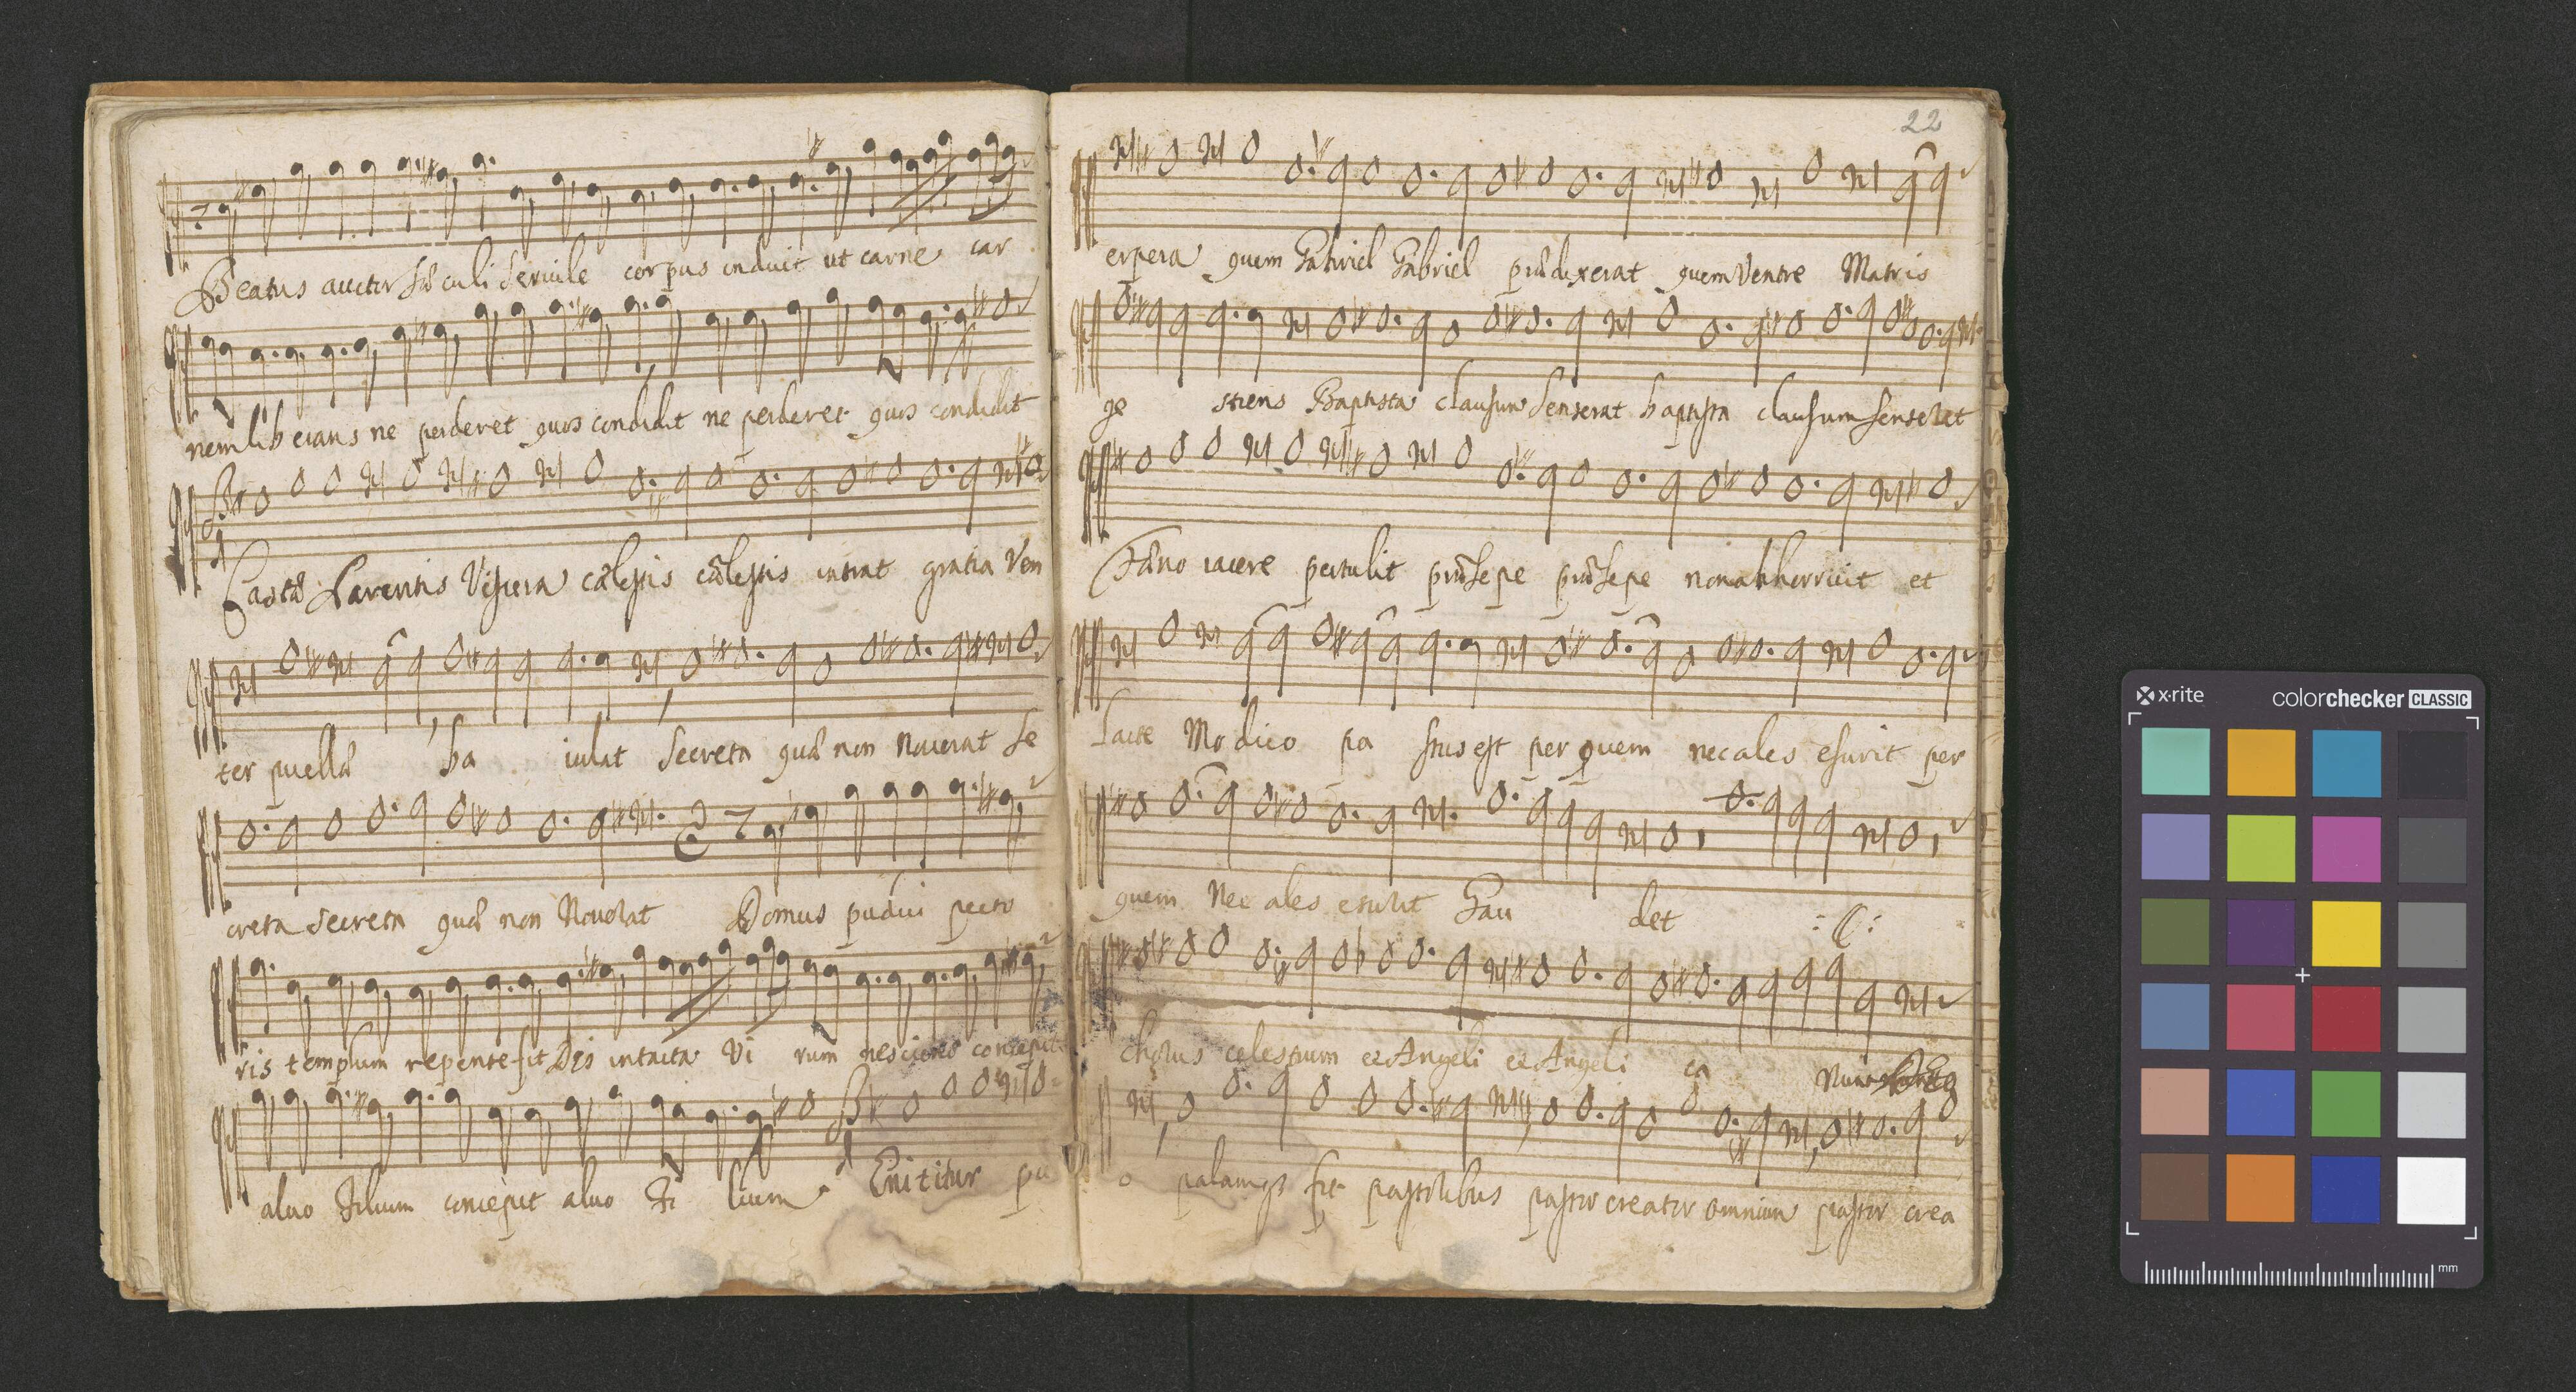 Beatus auctor sæculi Servile corpus induit ut carne car
nem liberans ne perderet quos condidit ne perderet quos condidit
Castæ Parentis Viscera cælestis cælestis intrat gratia Ven
ter puellæ ba iulat Secreta quæ non Noverat Se
creta Secreta quæ non Noverat Domus pudici pecto
ris templum repente fit Dei intacta Vi rum nesciens concepit
alvo Filium concepit alvo Fi lium Enititur pu
22
erpera quem Gabriel Gabriel prædixerat quem Ventre Matris
ge stiens Baptista clausum Senserat baptista clausum senserat
Fæno iacere pertulit præsepe præsepe non abhorruit et
lacte Modico pa stus est per quem nec ales esurit per
quem Nec ales esurit Gau det
chorus celestium et Angeli et Angeli ca Nunt
o palamq3 fit pastoribus pastor creator omnium pastor crea
x·rite
colorchecker CLASSIC
mm